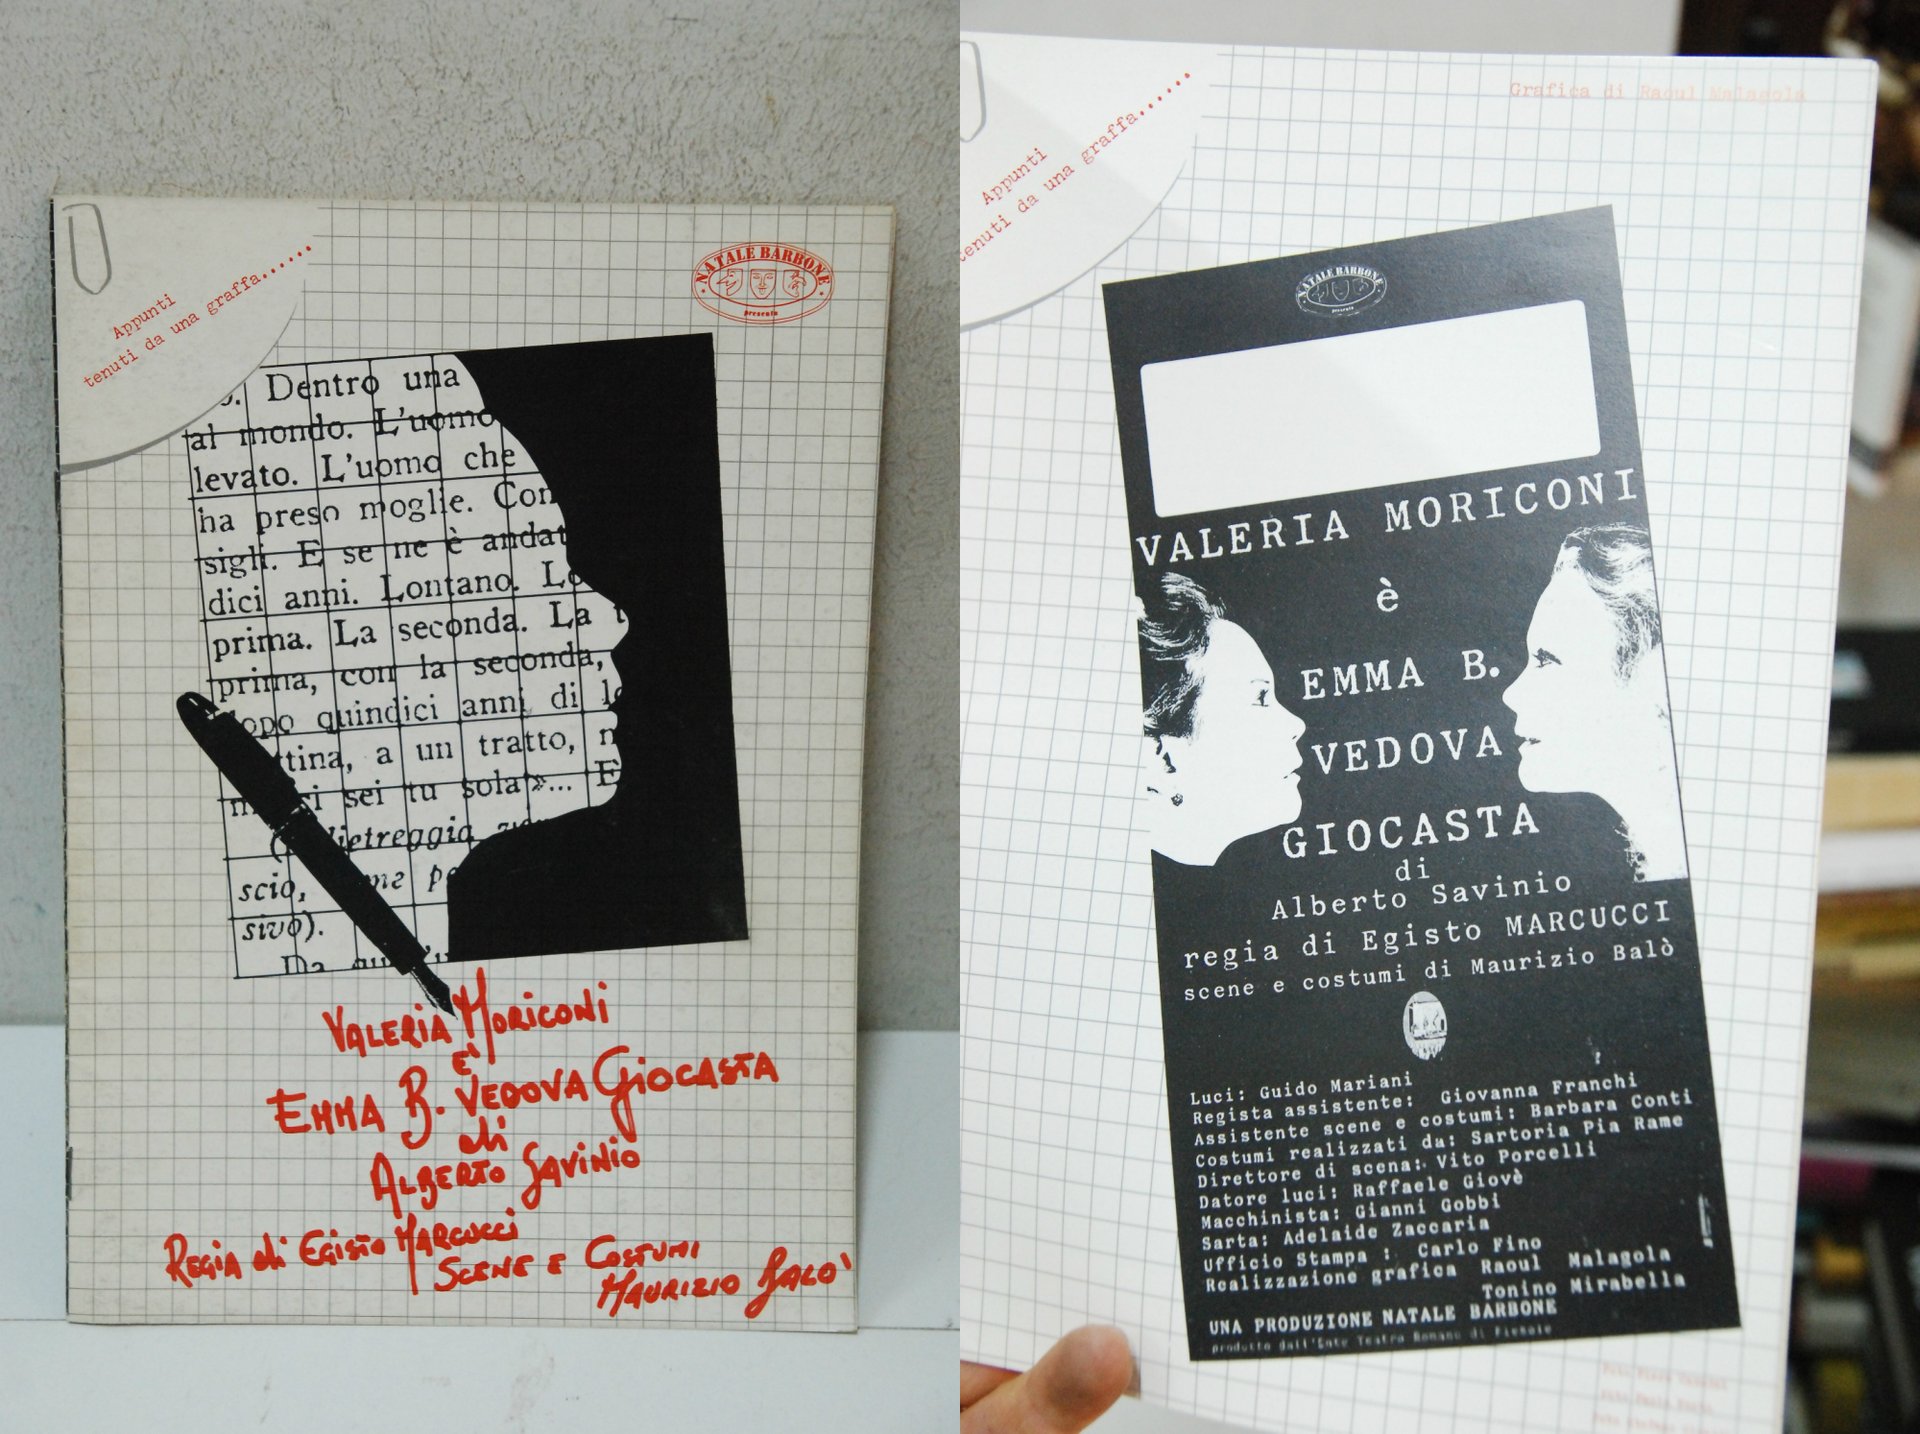 Appunti
tenuti da una graffa......
NATALE BARBONE
presenta
Dentro una
al mondo. L'uomo
levato. L'uomo che
ha preso moglie. Con
sigli. E se ne è andat
dici anni. Lontano. Lo
prima. La seconda. La t
prima, con la seconda,
dopo quindici anni di lo
ttina, a un tratto, n
sei tu sola»... E
scio,
sivo).
VALERIA MORICONI
E'
EMMA B. VEDOVA GIOCASTA
di
ALBERTO SAVINIO
REGIA di EGISTO MARCUCCI
SCENE E COSTUMI
MAURIZIO BALO'
Appunti
tenuti da una graffa......
Grafica di Raoul Malagola
NATALE BARBONE
presenta
VALERIA MORICONI
è
EMMA B.
VEDOVA
GIOCASTA
di
Alberto Savinio
regia di Egisto MARCUCCI
scene e costumi di Maurizio Balò
Luci: Guido Mariani
Regista assistente: Giovanna Franchi
Assistente scene e costumi: Barbara Conti
Costumi realizzati da: Sartoria Pia Rame
Direttore di scena: Vito Porcelli
Datore luci: Raffaele Giovè
Macchinista: Gianni Gobbi
Sarta: Adelaide Zaccaria
Ufficio Stampa : Carlo Fino
Realizzazione grafica Raoul Malagola
Tonino Mirabella
UNA PRODUZIONE NATALE BARBONE
prodotto dall'Ente Teatro Romano di Fiesole